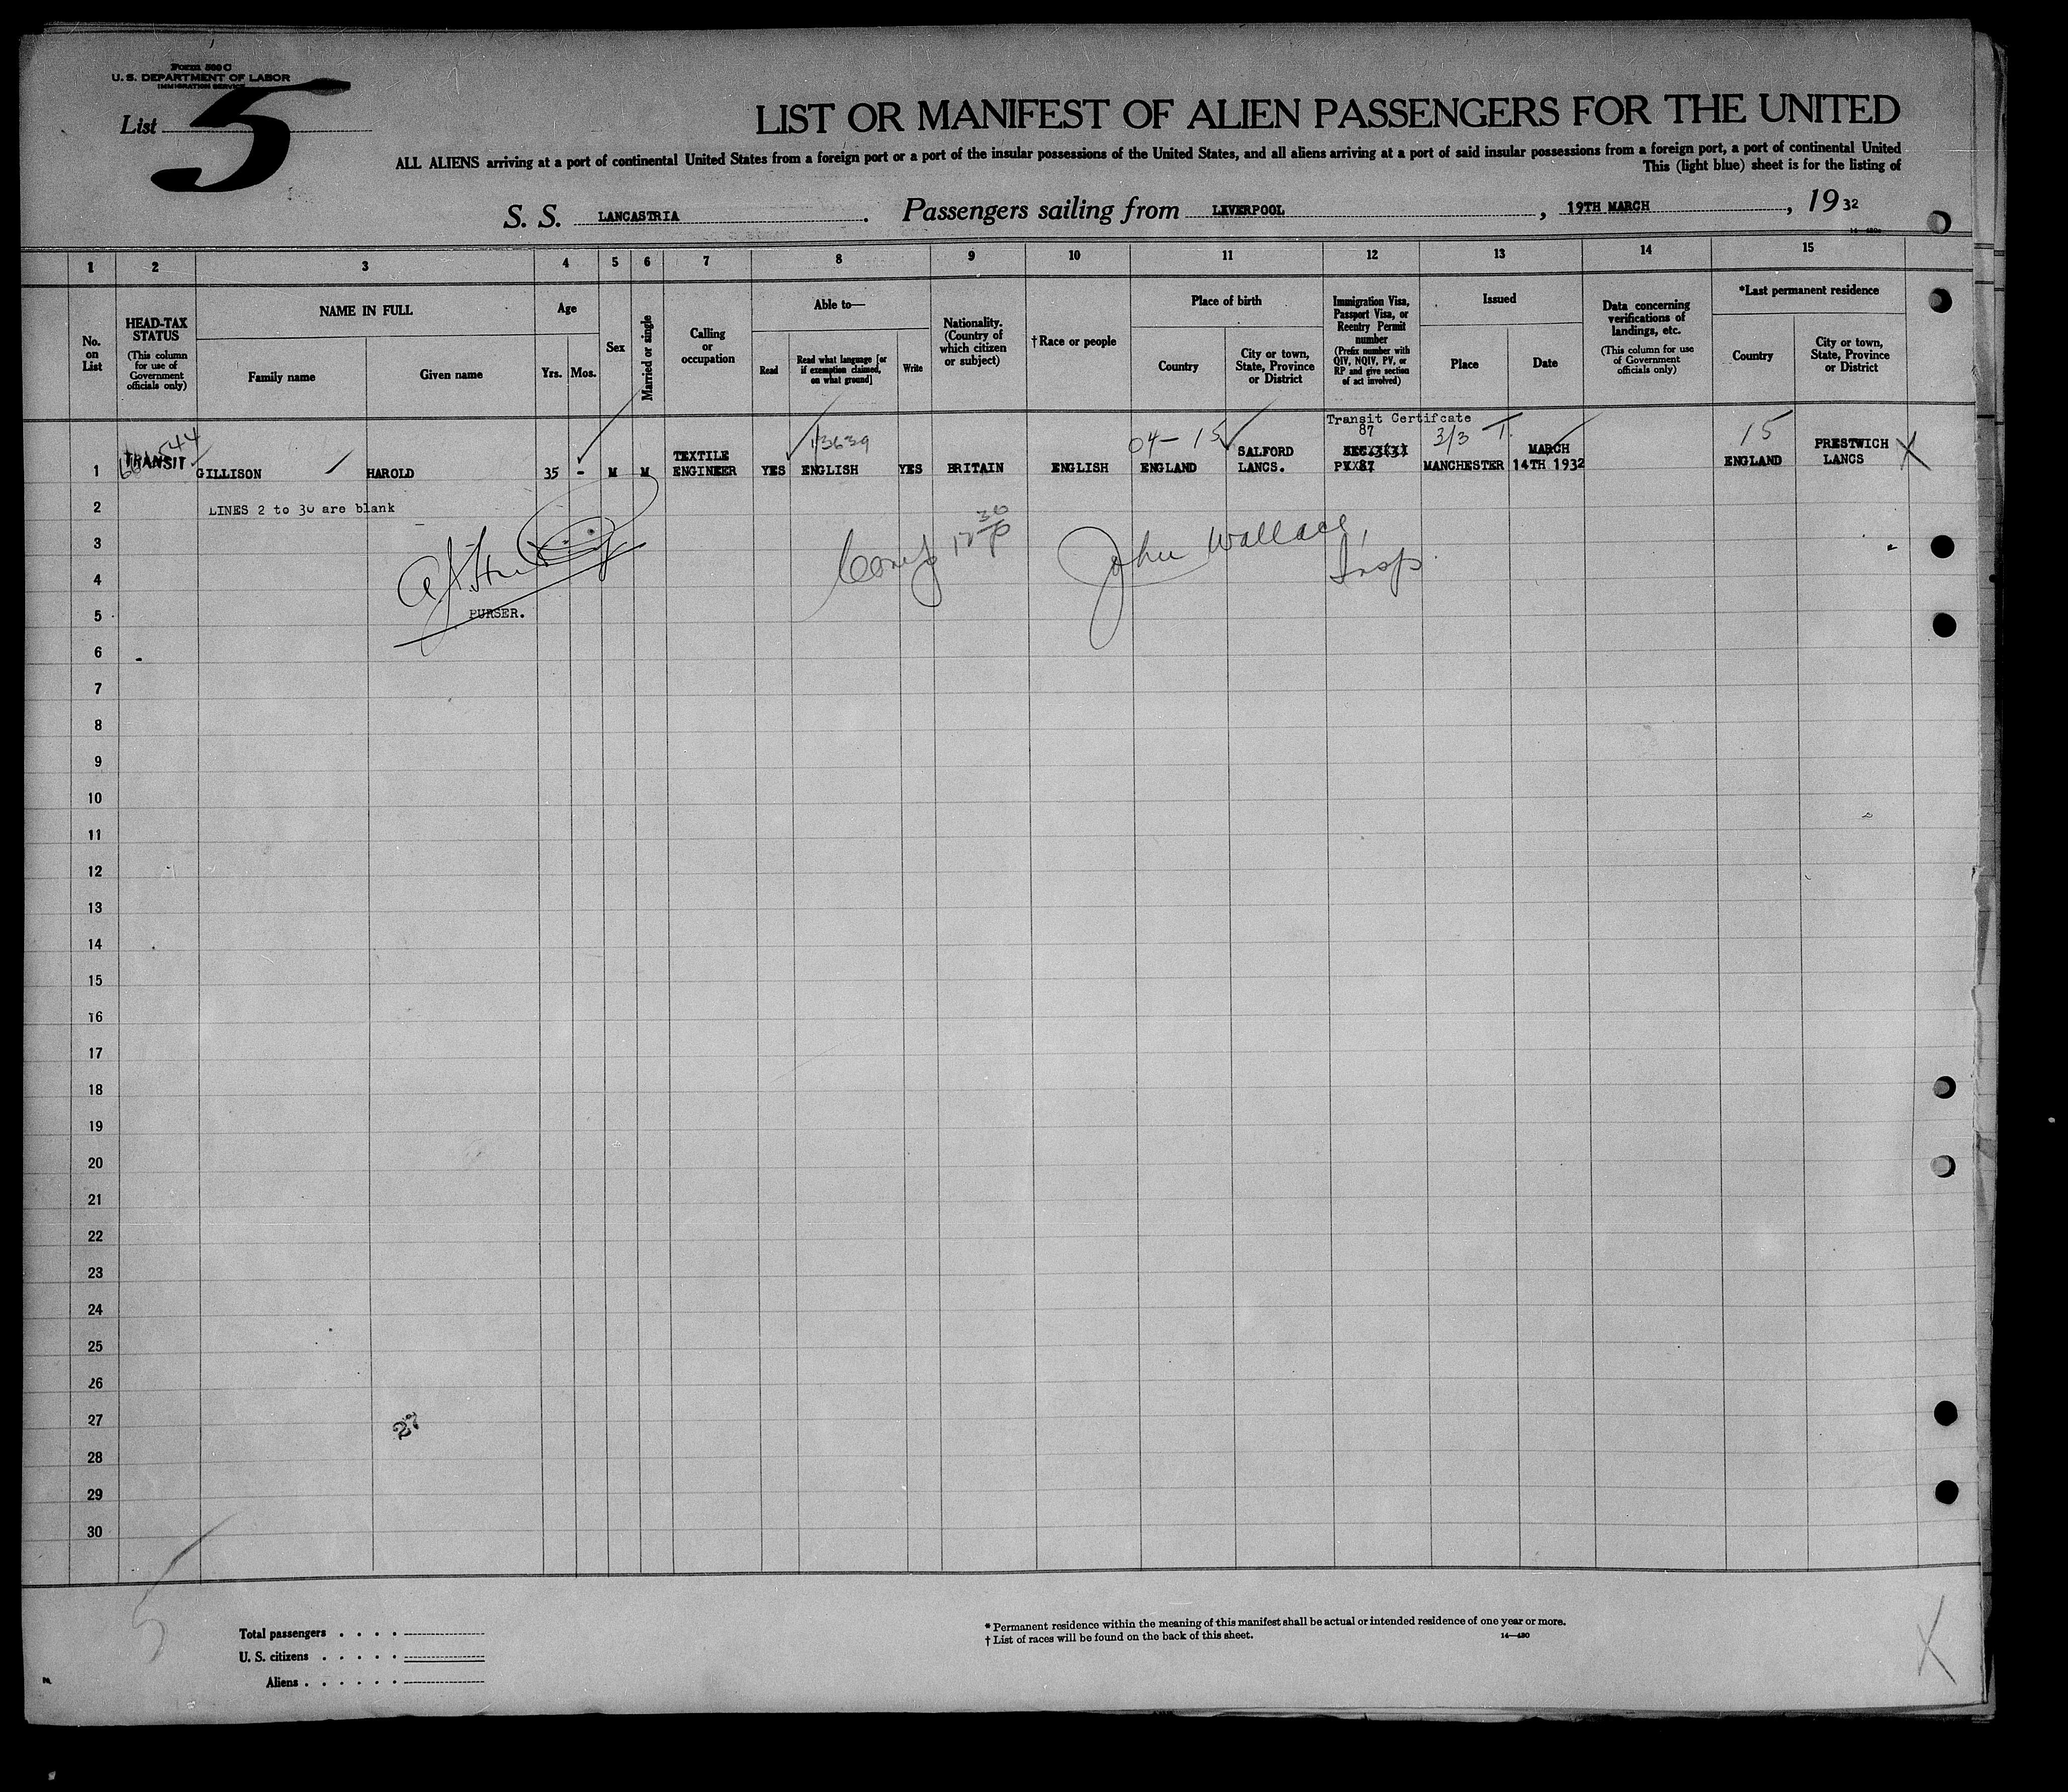 Form 500 C
U. S. DEPARTMENT OF LABOR
IMMIGRATION SERVICE
List 5
LIST OR MANIFEST OF ALIEN PASSENGERS FOR THE UNITED
ALL ALIENS arriving at a port of continental United States from a foreign port or a port of the insular possessions of the United States, and all aliens arriving at a port of said insular possessions from a foreign port, a port of continental United
This (light blue) sheet is for the listing of
S. S. LANCASTRIA. Passengers sailing from LIVERPOOL, 19TH MARCH, 1932
1 2 3 4 5 6 7 8 9 10 11 12 13 14 15
No. on List
HEAD-TAX STATUS
(This column for use of Government officials only)
NAME IN FULL
Family name
Given name
Age
Yrs. Mos.
Sex
Married or single
Calling or occupation
Able to—
Read
Read what language [or if exemption claimed, on what ground]
Write
Nationality. (Country of which citizen or subject)
† Race or people
Place of birth
Country
City or town, State, Province or District
Immigration Visa, Passport Visa, or Reentry Permit number
(Prefix number with QIV, NQIV, PV, or RP and give section of act involved)
Issued
Place
Date
Data concerning verifications of landings, etc.
(This column for use of Government officials only)
*Last permanent residence
Country
City or town, State, Province or District
Transit Certifcate
87
13639
04-15
3/3 T.
15
1 TRANSIT GILLISON HAROLD 35 - M M TEXTILE ENGINEER YES ENGLISH YES BRITAIN ENGLISH ENGLAND SALFORD LANCS. MANCHESTER MARCH 14TH 1932 ENGLAND PRESTWICH LANCS X
2 LINES 2 to 30 are blank
3 John Wallace,
4 Insp.
5 PURSER.
6
7
8
9
10
11
12
13
14
15
16
17
18
19
20
21
22
23
24
25
26
27 27
28
29
30
5
Total passengers . . . .
U. S. citizens . . . . .
Aliens . . . . . .
* Permanent residence within the meaning of this manifest shall be actual or intended residence of one year or more.
† List of races will be found on the back of this sheet.
14—430
X